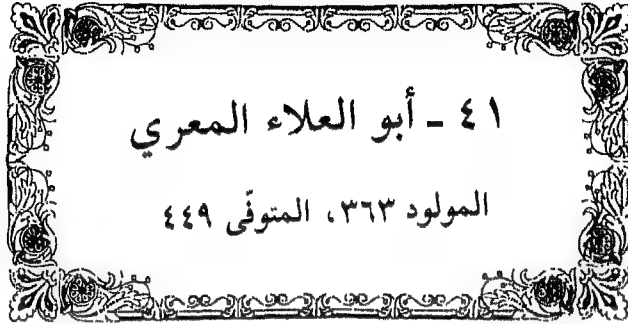 ٤١ - أبو العلاء المعري
المولود ٣٦٣، المتوفّى ٤٤٩